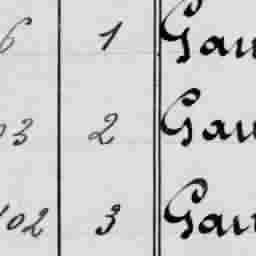 6 1 Gau
03 2 Gau
102 3 Gau